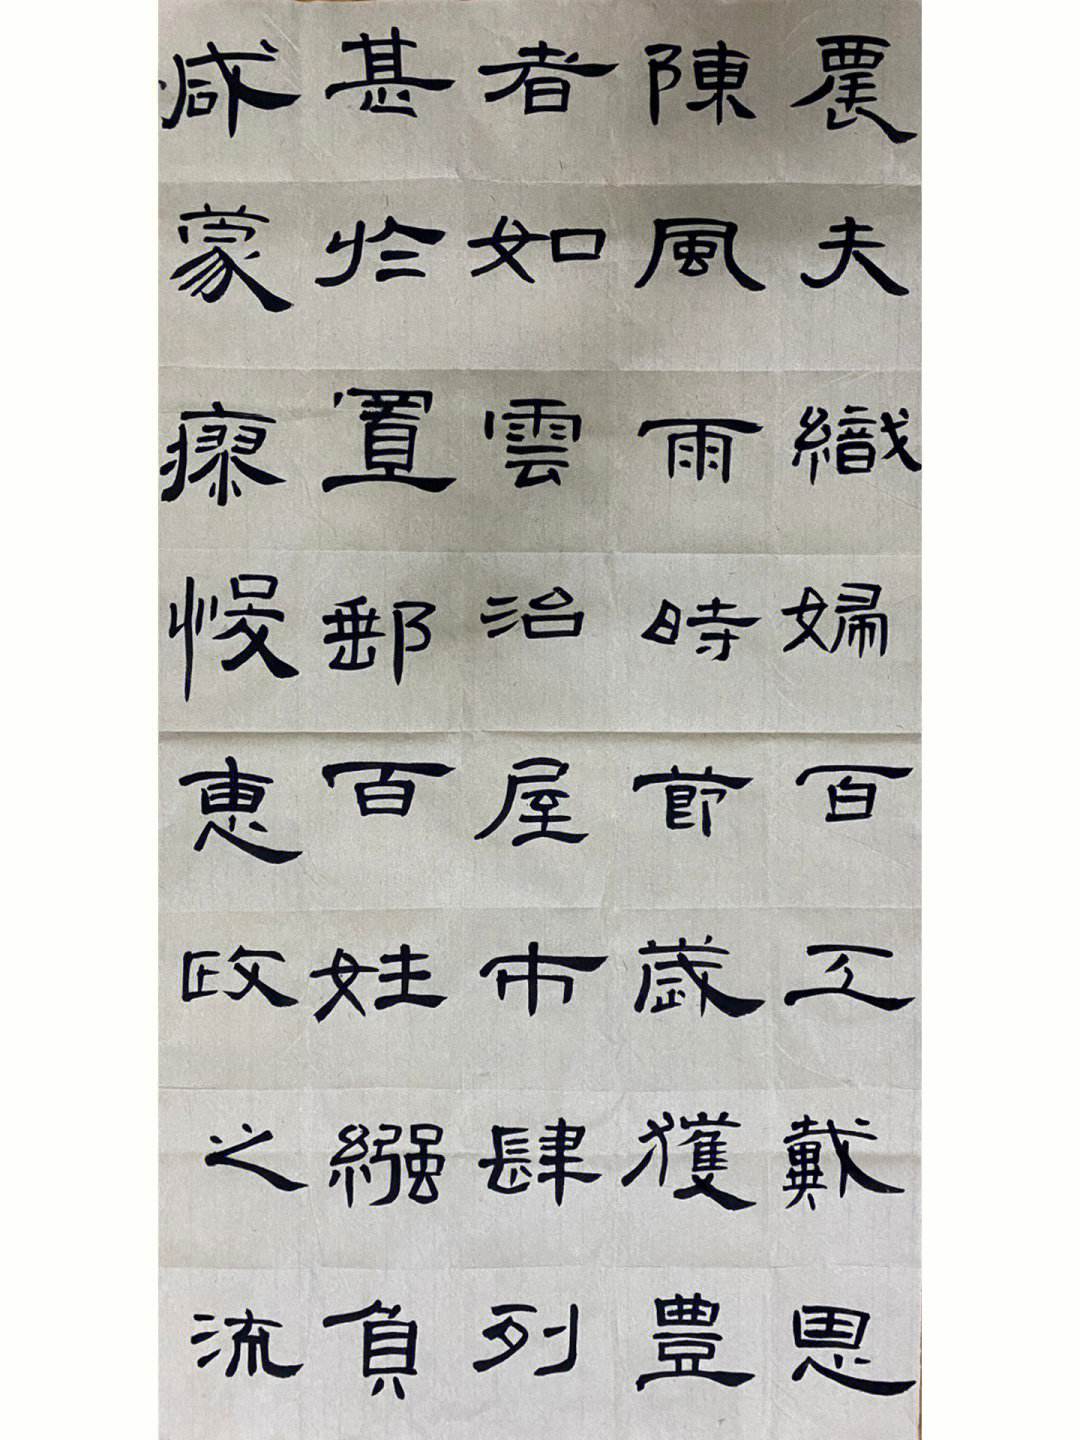 咸蒙瘳悛惠政之流
甚於置郵百姓繦負
者如雲治屋市肆列
陳風雨時節歲獲豊
農夫織婦百工戴恩